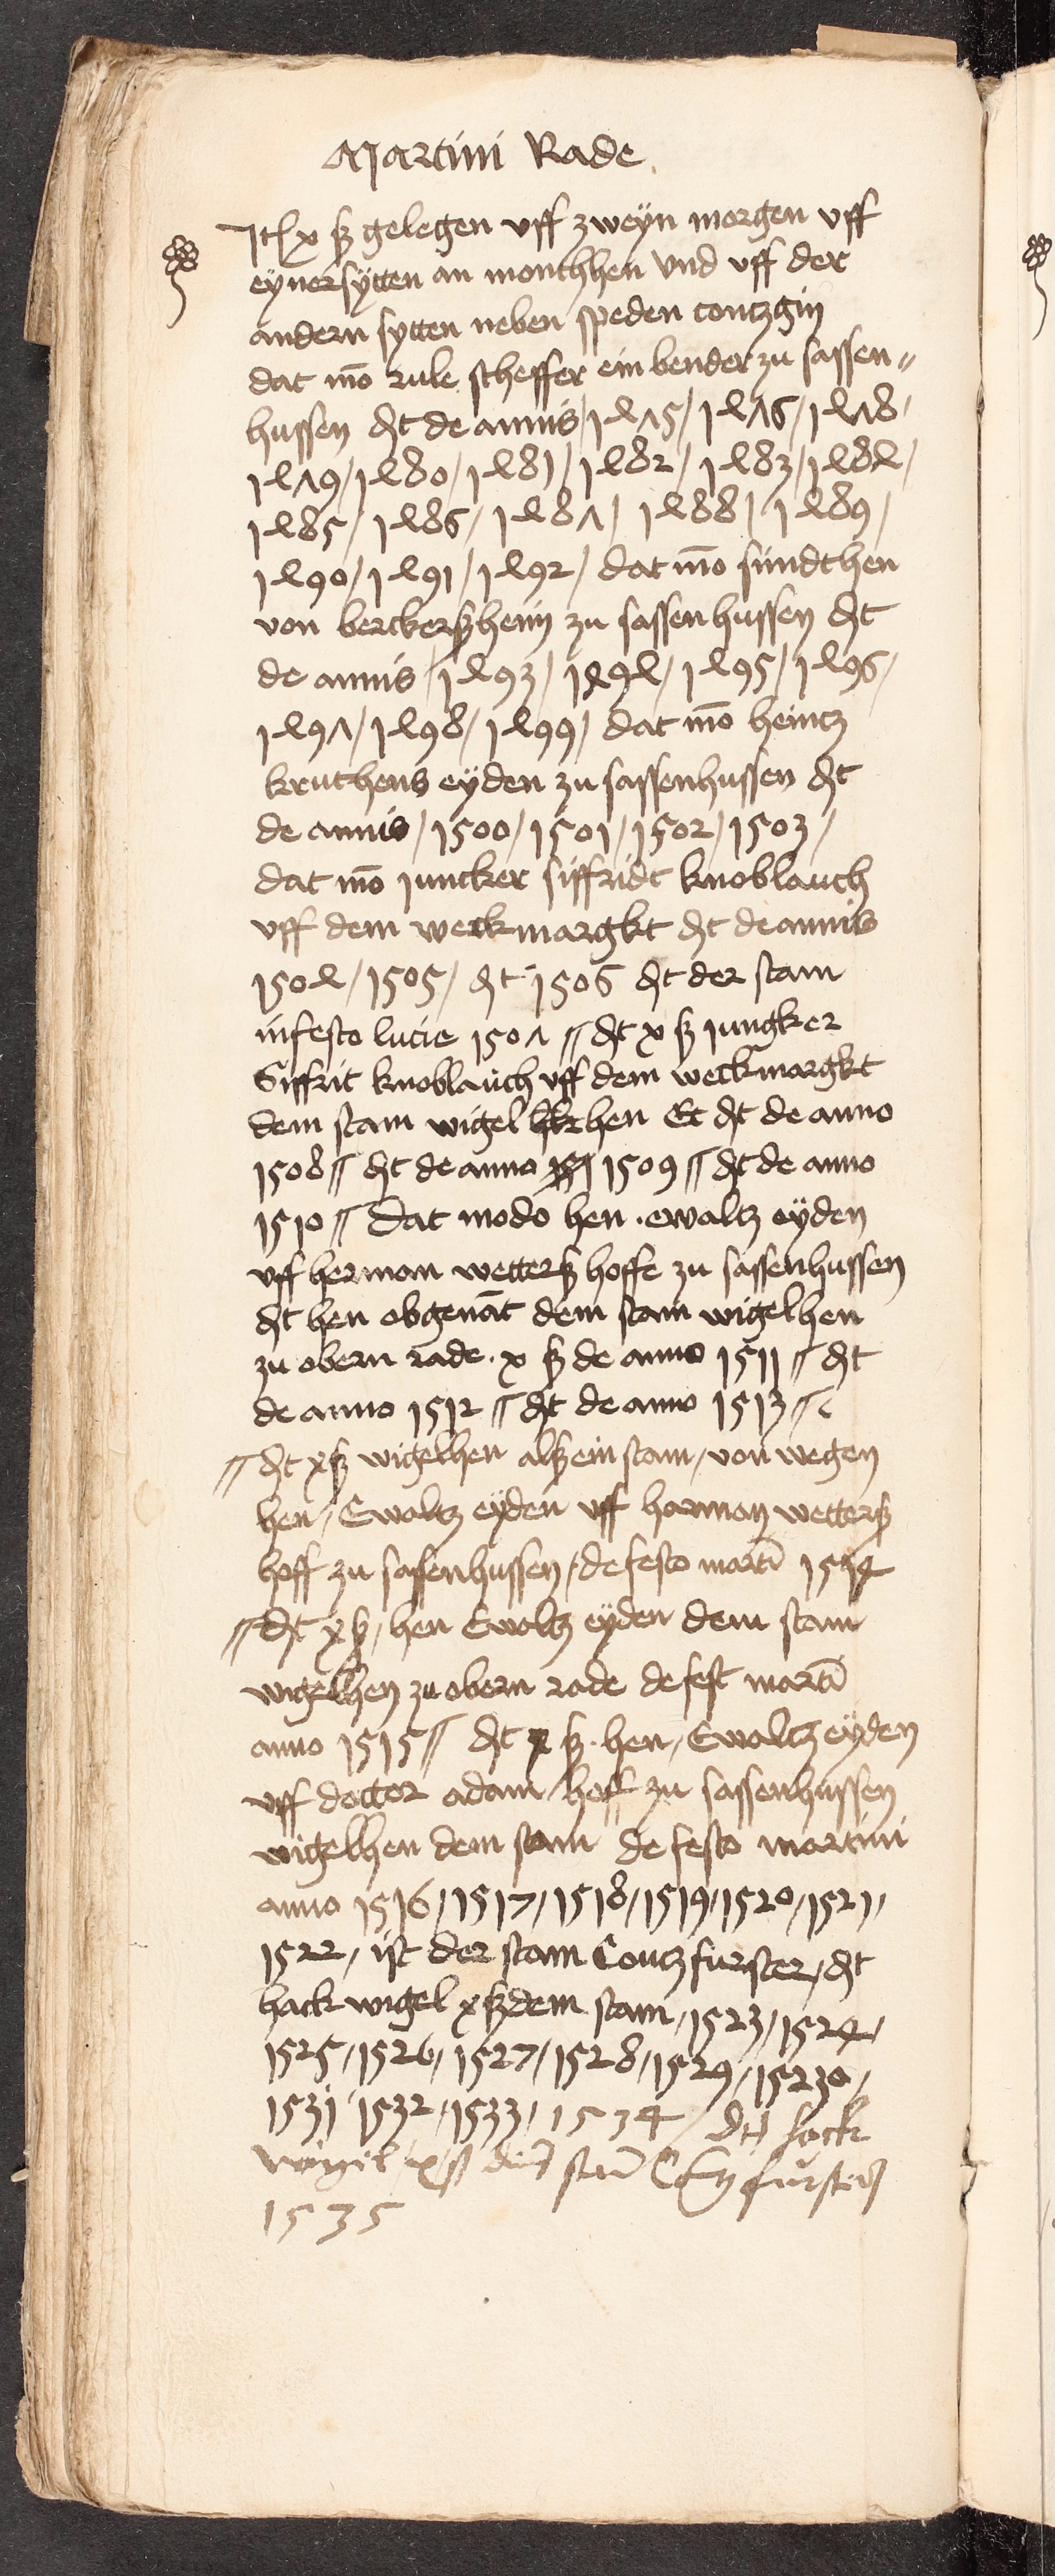 Martini Rade
Jt x ß gelegen vff zweyn morgen vff
eyner sytten an monchhen vnd vff der
andern sytten neben speden contzgin
dat mō rule scheffer ein bender zu sassen〃
hussen dt de annis / 1475 / 1476 / 1478 /
1479 / 1480 / 1481 / 1482 / 1483 / 1484 /
1485 / 1486 / 1487 / 1488 / 1489 /
1490 / 1491 / 1492 / dat mō sundthen
von berckerßheim zu sassenhussen dt
de annis / 1493 / 1494 / 1495 / 1496 /
1497 / 1498 / 1499 / dat mō heintz
kruthens eyden zu sassenhussen dt
de annis / 1500 / 1501 / 1502 / 1503 /
dat mō juncker siffridt knoblauch
vff dem weckmargkt dt de annis
1504 / 1505 / dt 1506 dt der stam
in festo lucie 1507 // dt x ß jungker
Siffrit knoblauch vff dem weckmargkt
dem stam wigel hen Et dt de anno
1508 // dt de anno 1509 // dt de anno
1510 // Dat modo hen . ewaltz eyden
vff herman wetterß hoffe zu sassenhussen
dt hen obgenāt dem stam wigelhen
zu obern rade . x ß de anno 1511 // dt
de anno 1512 // dt de anno 1513 //
// dt x ß wigelhen alß ein stam / von wegen
hen / Ewaltz eyden vff harman wetterß
hoff zu sassenhussen / de festo martī 1514
// dt x ß / hen Ewoltz eyden dem stam
wigelhen zu obern rade de fest martī
anno 1515 // dt x ß . hen / Ewaltz eyden
vff doctor adam hoff zu sassenhussen
wigelhen dem stam de festo martini
anno 1516 / 1517 / 1518 / 1519 / 1520 / 1521 /
1522 / ist der stam Contz furster / dt
hack wigel x ß dem stam / 1523 / 1524 /
1525 / 1526 / 1527 / 1528 / 1529 / 15230 /
1531 / 1532 / 1533 / 1534 / dt hack
wigel x ß stā furster
1535